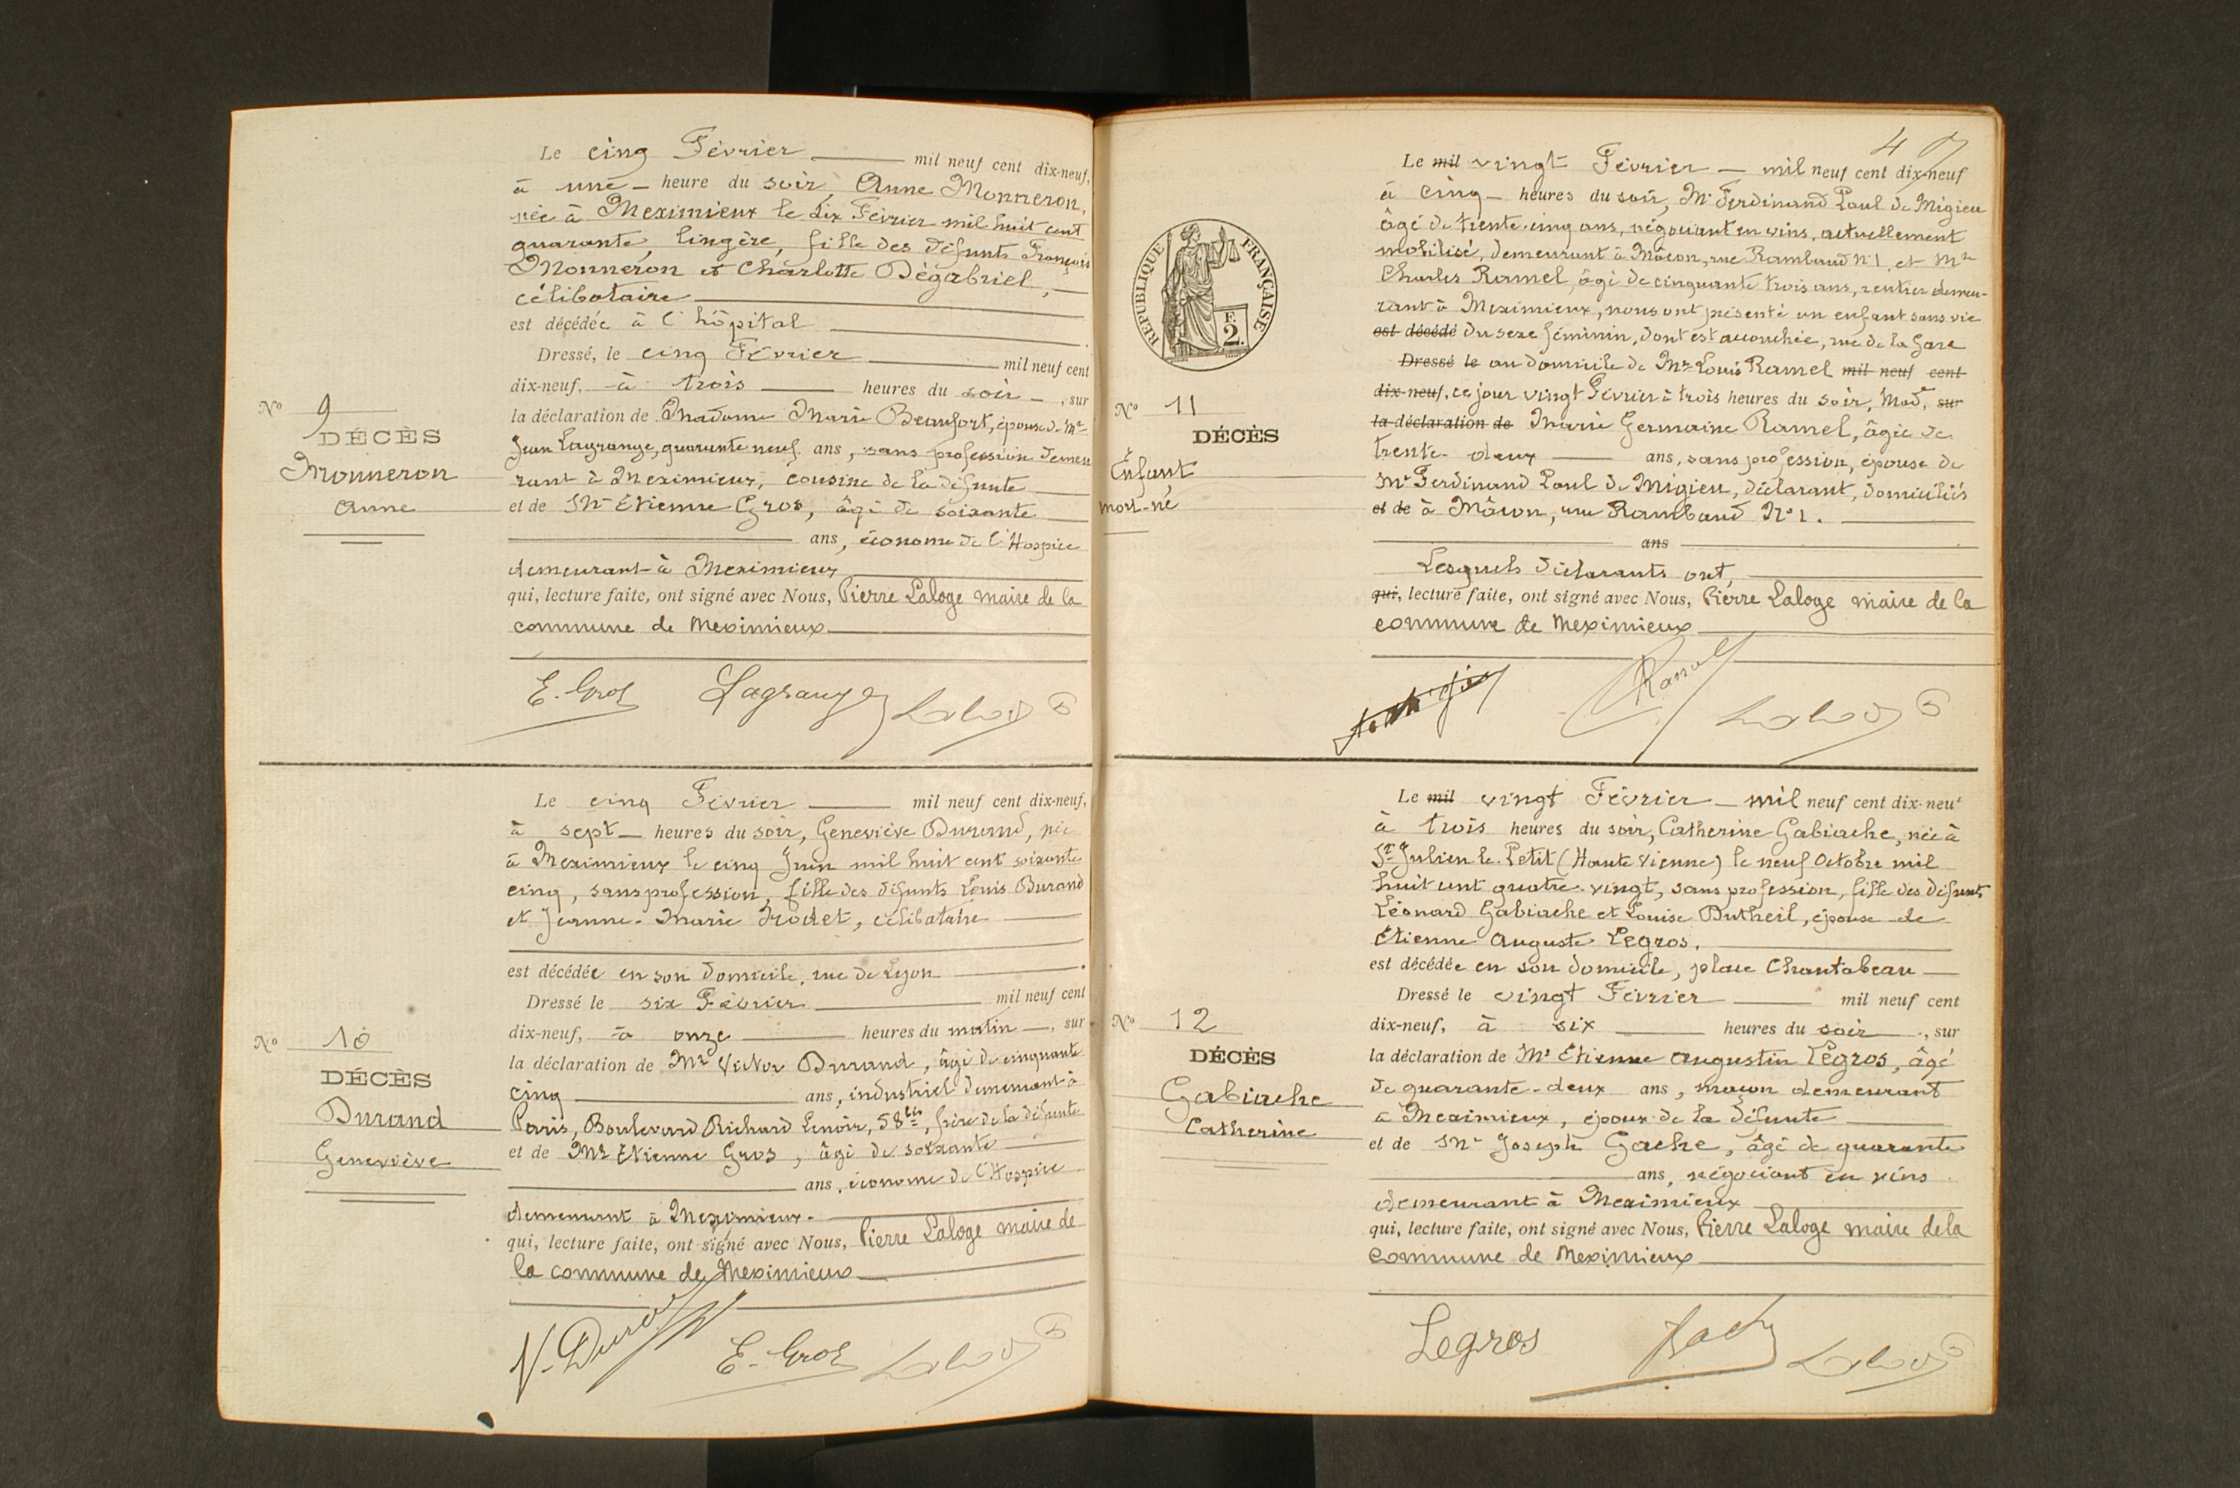 Le cinq Février mil neuf cent dix-neuf,
à une heure du soir, Anne Monneron,
née à Meximieux le dix Février mil huit cent
quarante, lingère, fille des défunts François
Monneron et Charlotte Dégabriel,
célibataire
est décédée à l'hôpital
Dressé, le cinq Février mil neuf cent
dix-neuf, à trois heures du soir, sur
la déclaration de Madame Marie Beaufort, épouse de Mr
Jean Lagrange, quarante neuf ans, sans profession demeu
rant à Meximieux, cousine de la défunte
et de Mr Etienne Gros, âgé de soixante
ans, économe de l'Hospice
demeurant à Meximieux
qui, lecture faite, ont signé avec Nous, Pierre Laloge maire de la
commune de Meximieux
E. Gros Lagrange Laloge
No 9
DÉCÈS
Monneron
Anne
Le cinq Février mil neuf cent dix-neuf,
à sept heures du soir, Geneviève Durand, née
à Meximieux le cinq Juin mil huit cent soixante
cinq, sans profession, fille des défunts Louis Durand
et Jeanne-Marie Trodet, célibataire
est décédée en son domicile, rue de Lyon.
Dressé le six Février mil neuf cent
dix-neuf, à onze heures du matin, sur
la déclaration de Mr Victor Durand, âgé de cinquante
cinq ans, industriel demeurant à
Paris, Boulevard Richard Lenoir, 58bis, frère de la défunte
et de Mr Etienne Gros, âgé de soixante
ans, économe de l'Hospice
demeurant à Meximieux.
qui, lecture faite, ont signé avec Nous, Pierre Laloge maire de
la commune de Meximieux
V. Durand E. Gros Laloge
No 10
DÉCÈS
Durand
Geneviève
4
RÉPUBLIQUE FRANÇAISE
F.
2.
Le mil vingt Février mil neuf cent dix-neuf
à cinq heures du soir, Mr Ferdinand Paul de Migieu
âgé de trente cinq ans, négociant en vins, actuellement
mobilisé, demeurant à Mâcon, rue Rambaud No 1, et Mr
Charles Ramel, âgé de cinquante trois ans, rentier demeu-
rant à Meximieux, nous ont présenté un enfant sans vie
est décédé du sexe féminin, dont est accouchée, rue de la Gare
Dressé le au domicile de Mr Louis Ramel mil neuf cent
dix-neuf, ce jour vingt Février à trois heures du soir, Made sur
la déclaration de Marie Germaine Ramel, âgée de
trente-deux ans, sans profession, épouse de
Mr Ferdinand Paul de Migieu, déclarant, domiciliés
et de à Mâcon, rue Rambaud No 1.
ans
Lesquels déclarants ont,
qui, lecture faite, ont signé avec Nous, Pierre Laloge maire de la
commune de Meximieux
Ramel Laloge
No 11
DÉCÈS
Enfant
mort-né
Le mil vingt Février mil neuf cent dix-neuf
à trois heures du soir, Catherine Gabiache, née à
St Julien le Petit (Haute Vienne) le neuf Octobre mil
huit cent quatre-vingt, sans profession, fille des défunts
Léonard Gabiache et Louise Dutheil, épouse de
Etienne Auguste Legros.
est décédée en son domicile, place Chantabeau
Dressé le vingt Février mil neuf cent
dix-neuf, à six heures du soir, sur
la déclaration de Mr Etienne Augustin Legros, âgé
de quarante-deux ans, maçon demeurant
à Meximieux, époux de la défunte
et de Mr Joseph Gache, âgé de quarante
ans, négociant en vins
demeurant à Meximieux
qui, lecture faite, ont signé avec Nous, Pierre Laloge maire de la
commune de Meximieux
Legros Gache Laloge
No 12
DÉCÈS
Gabiache
Catherine